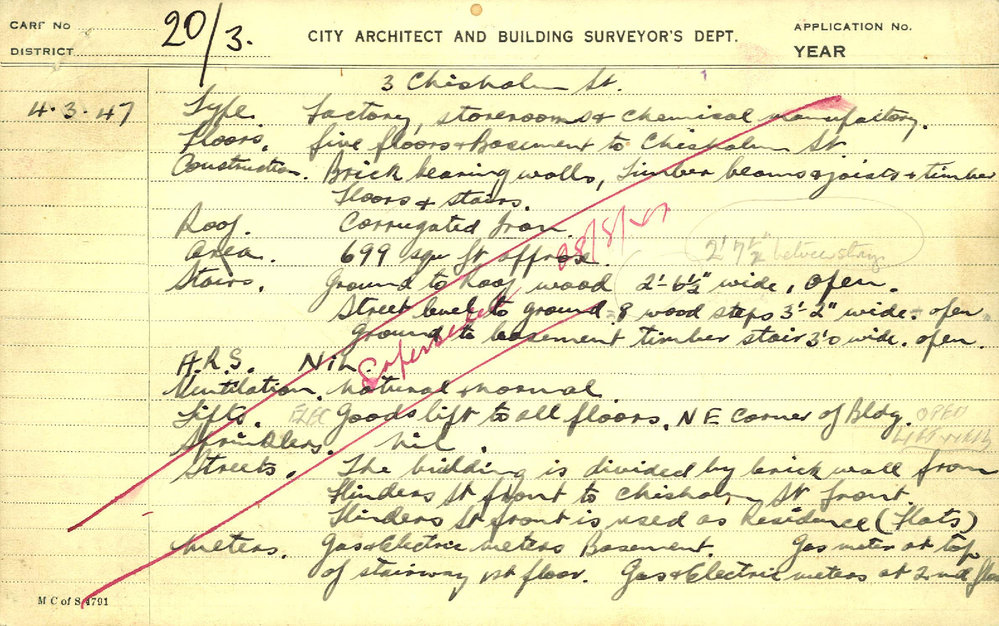 CARD No
20/3.
CITY ARCHITECT AND BUILDING SURVEYOR'S DEPT.
APPLICATION No.
DISTRICT
YEAR
3 Chisholm St.
4.3.47
Type. Factory, storerooms & chemical manufactory.
Floors. five floors & Basement to Chisholm St
Construction. Brick bearing walls, Timber beams & joists & timber
Floors & stairs.
Roof. Corrugated Iron.
Area. 699 squ ft approx.
28/8/
2' 7½" between strings
Stairs. Ground to Roof wood 2'-6½" wide, open.
Street level to ground = 8 wood steps 3'-2" wide - open
Ground to basement timber stair 3'0 wide. open.
Superseded
A.R.S. Nil.
Ventilation. Natural & normal
Lifts. ELEC Goods lift to all floors. N E Corner of Bldg. OPEN
LIFT WELL
Sprinklers. Nil.
Streets. The building is divided by brick wall from
Flinders St front to Chisholm St front.
Flinders St front is used as Residence (Flats)
Meters. Gas & Electric meters Basement. Gas meter at top
of stairway 1st floor. Gas & Electric meters at 2nd floor
M C of S 4791